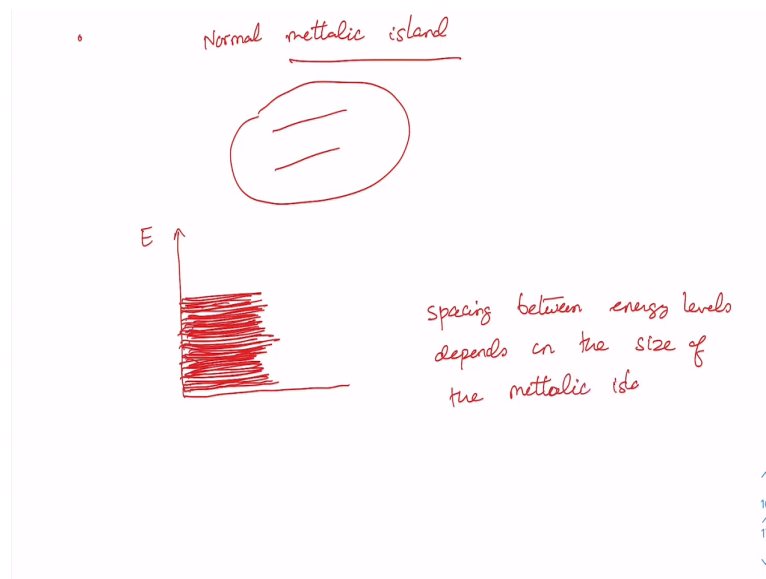 Normal mettalic island
E
spacing between energy levels
depends on the size of
the mettalic isla